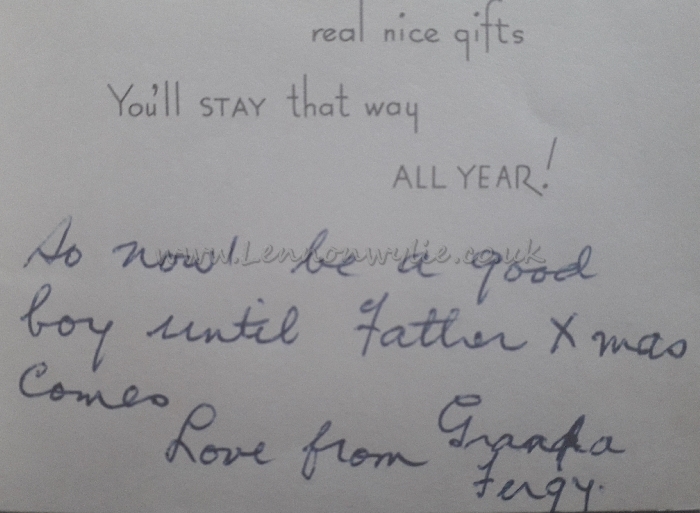 real nice gifts
You'll STAY that way
ALL YEAR!
So now be a good
www.Lennonwylie.co.uk
boy until Father Xmas
Comes
Love from Grandpa
Fergy.